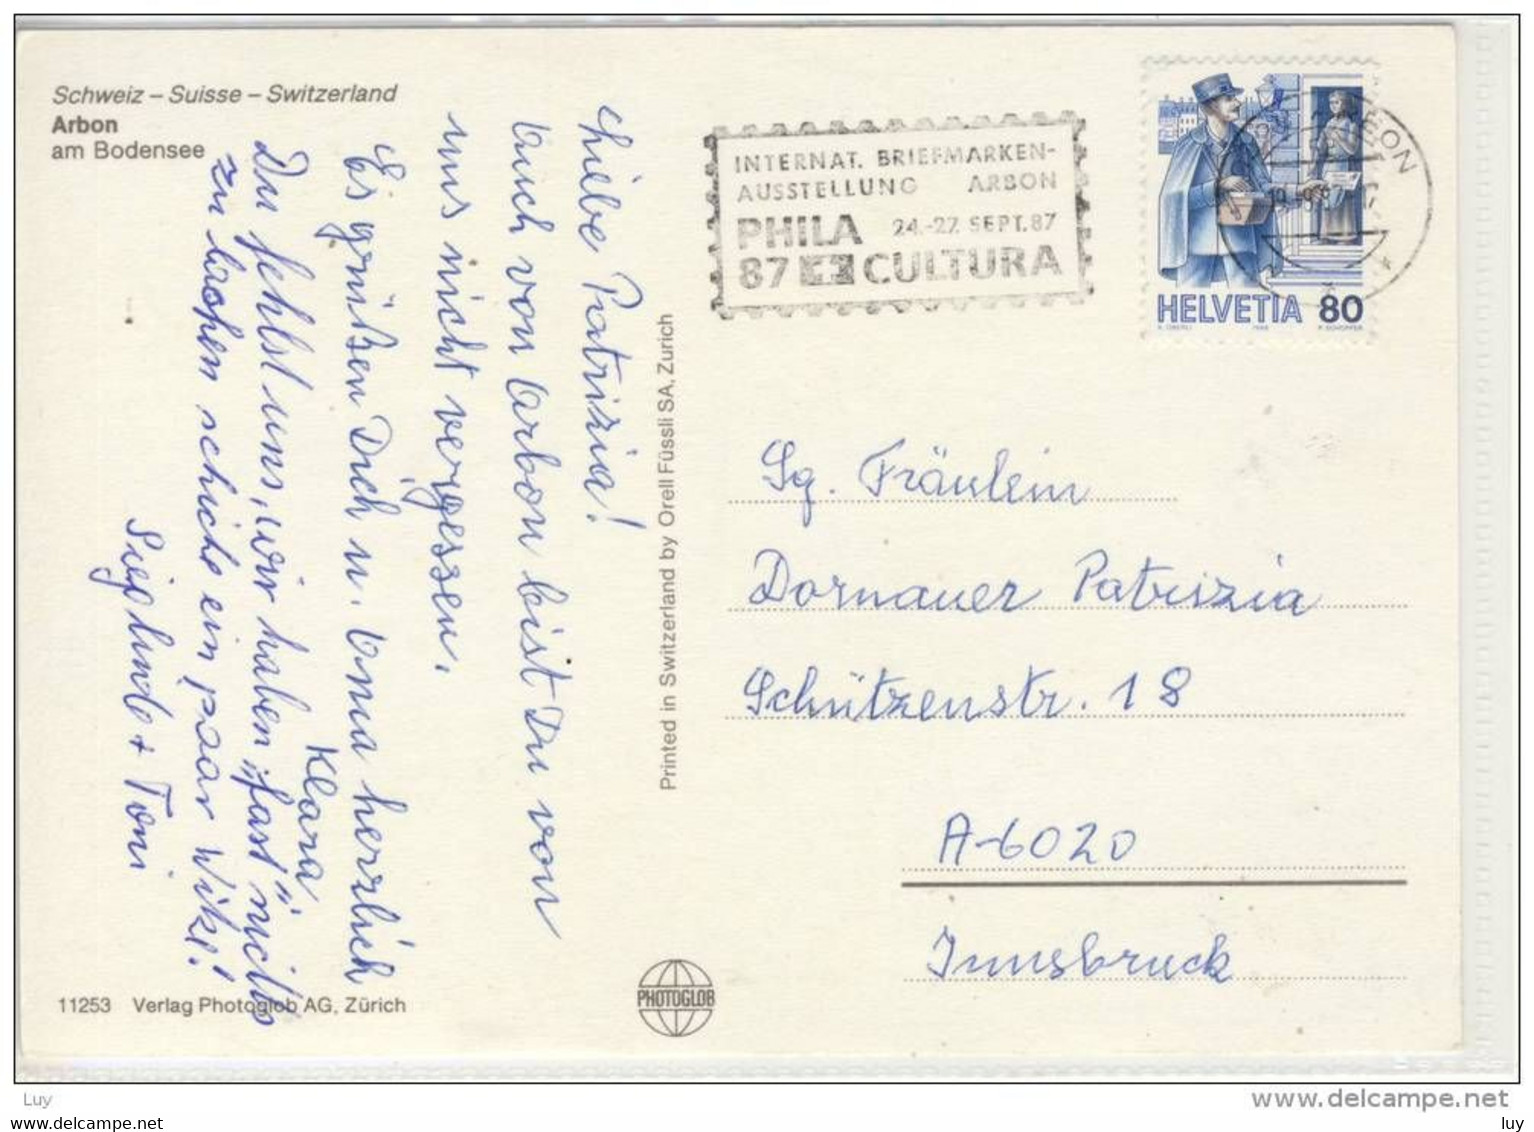 Schweiz – Suisse – Switzerland
Arbon
am Bodensee
Liebe Patrizia!
Auch von Arbon bist Du von
uns nicht vergessen.
Es grüßen Dich u. Oma herrlich
Klara
Du fehlst uns, wir haben „fast" nichts
zu lachen schicke ein paar Witze!
Sieglinde + Toni
11253 Verlag Photoglob AG, Zürich
Printed in Switzerland by Orell Füssli SA, Zurich
PHOTOGLOB
INTERNAT. BRIEFMARKEN-
AUSSTELLUNG ARBON
PHILA 24.-27. SEPT. 87
87 CULTURA
HELVETIA 80
Sg. Fräulein
Dornauer Patrizia
Schützenstr. 18
A-6020
Innsbruck
Luy
delcampe.net
www.delcampe.net
luy